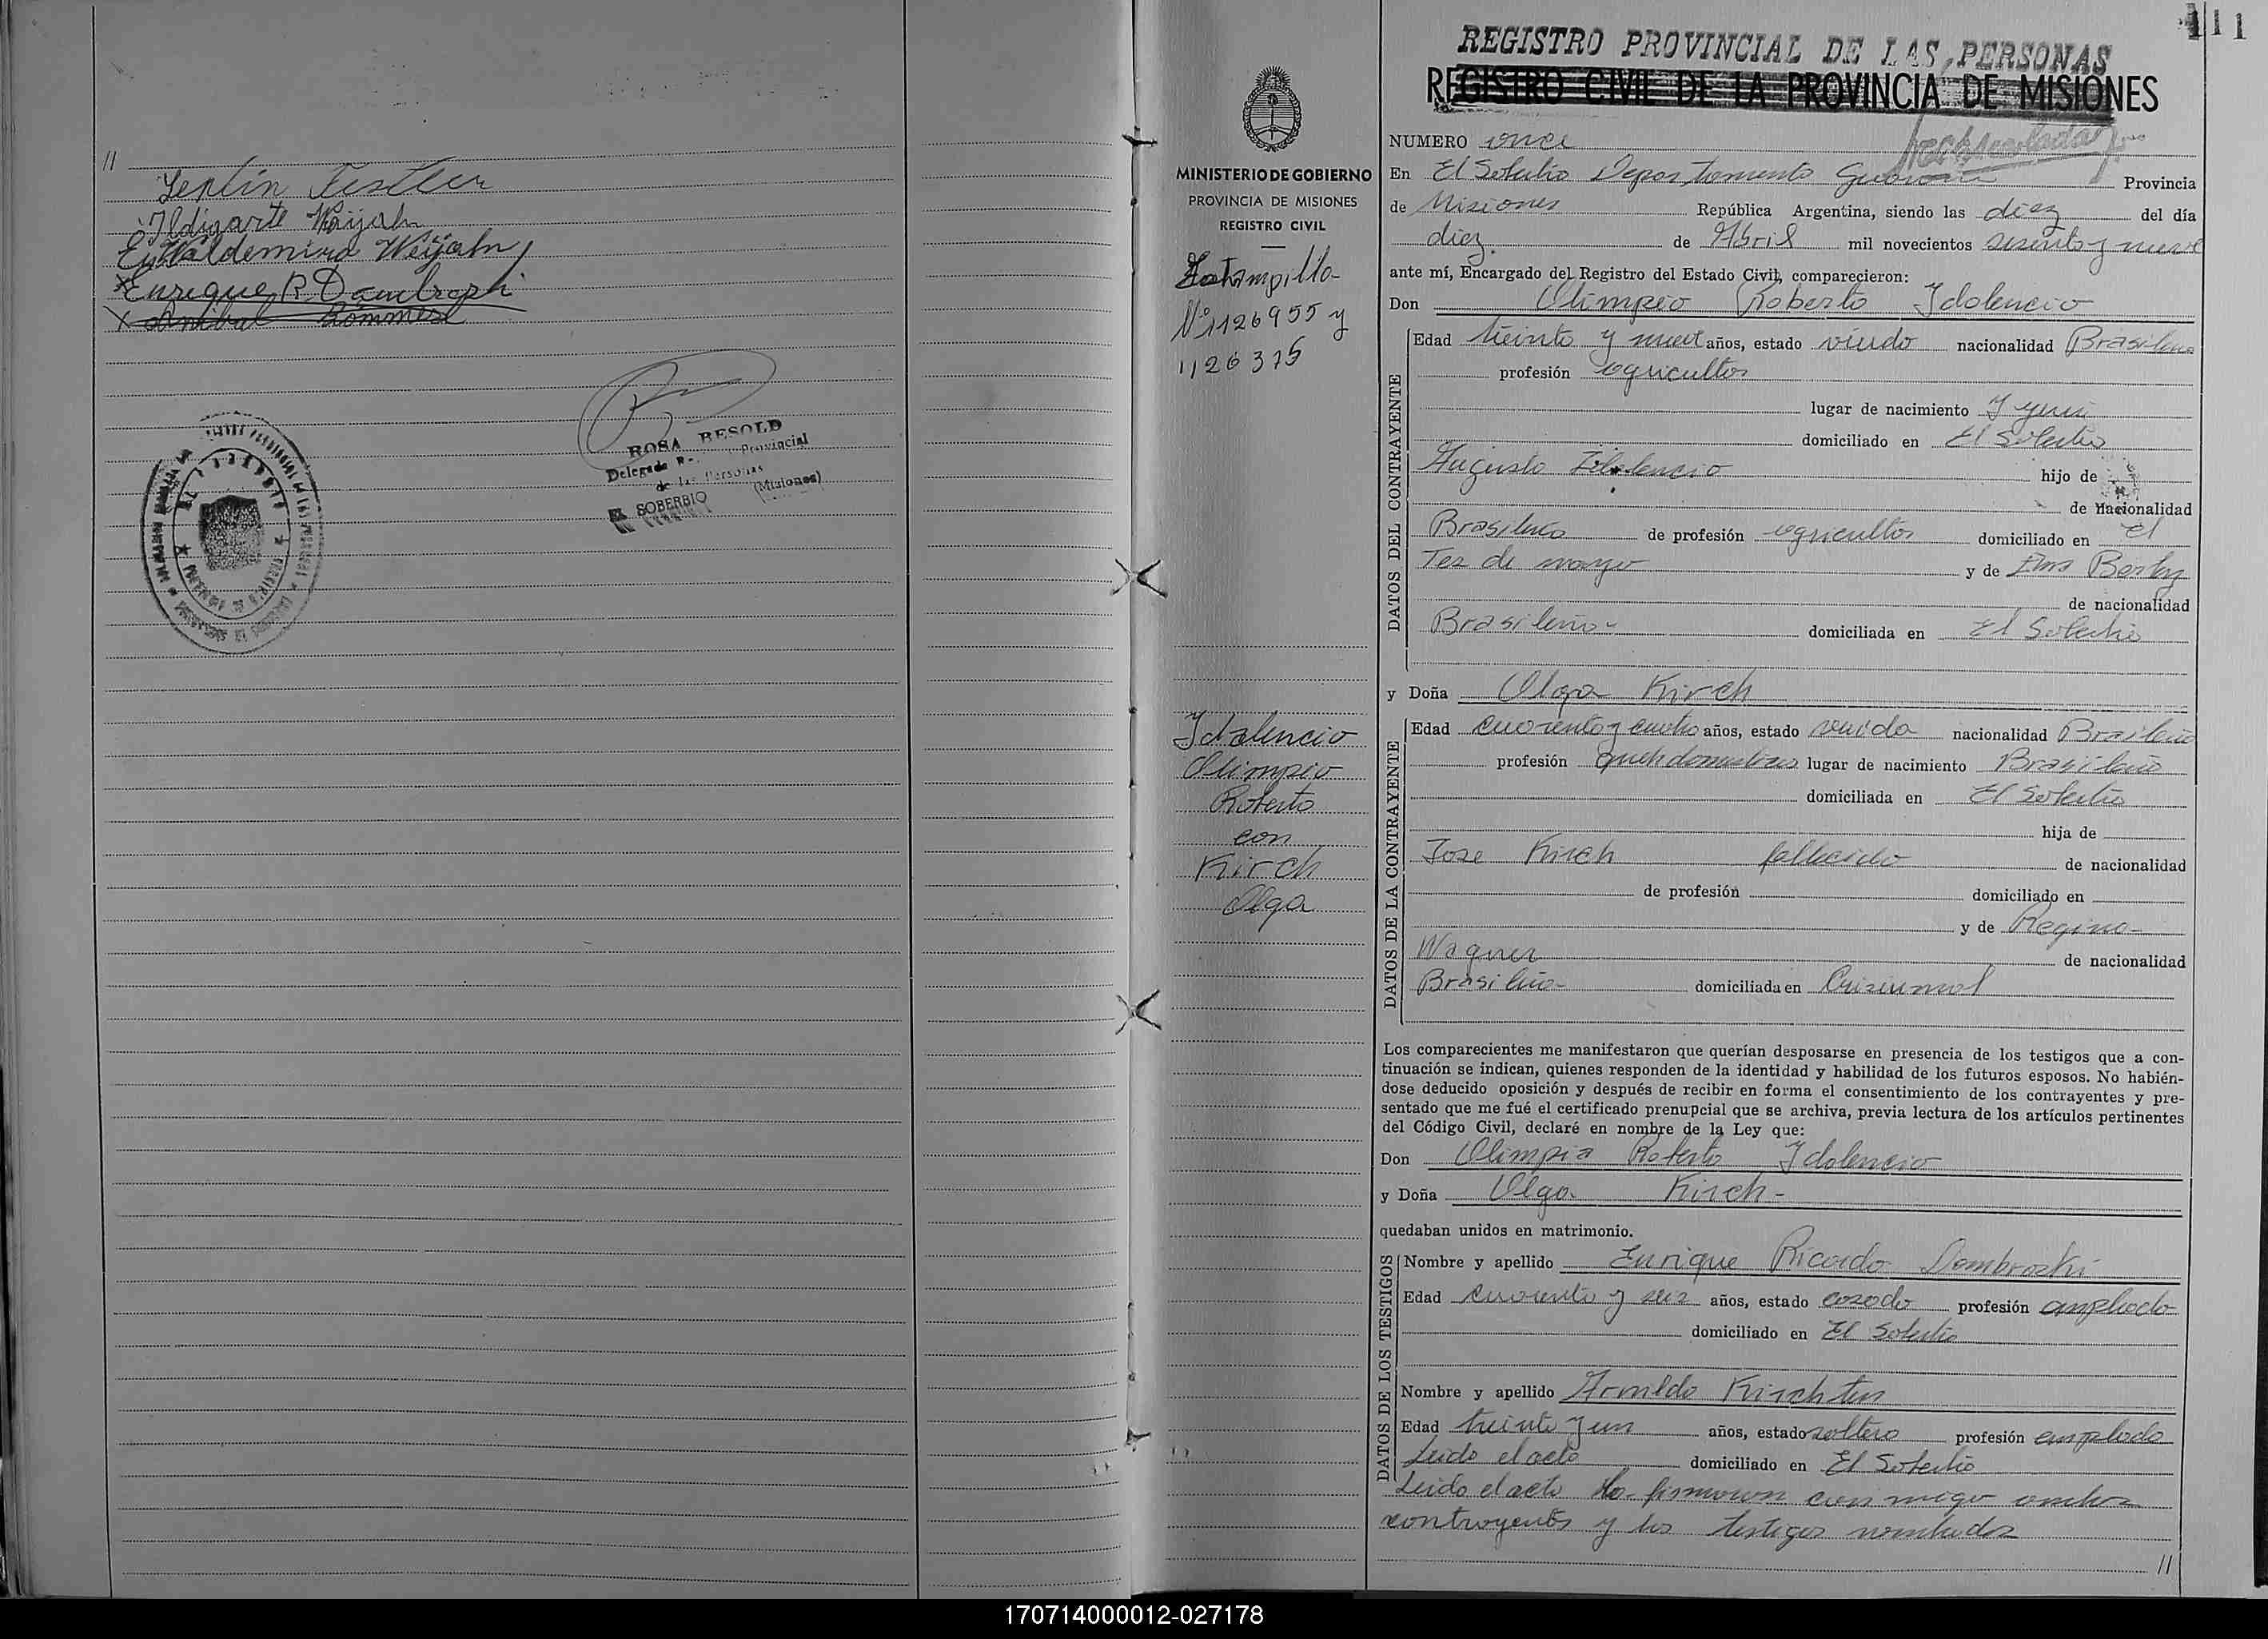 //
Ildigarte Weijahn
Waldemiro Weijahn
Enrique R. Dambroski
Anibal
ROSA BESOLD
Delegada Provincial
de las Personas
EL SOBERBIO (Misiones)
MINISTERIO DE GOBIERNO
PROVINCIA DE MISIONES
REGISTRO CIVIL
Estampilla
Nº 1126955 y
1126375
Idalencio
Olimpio
Roberto
con
Kirch
Olga
111
REGISTRO PROVINCIAL DE LAS PERSONAS
REGISTRO CIVIL DE LA PROVINCIA DE MISIONES
NUMERO once
En El Soberbio Departamento Guarani Provincia
de Misiones República Argentina, siendo las diez del día
diez de Abril mil novecientos sesenta y nueve
ante mí, Encargado del Registro del Estado Civil, comparecieron:
Don Olimpio Roberto Idalencio
DATOS DEL CONTRAYENTE
Edad treinta y nueve años, estado viudo nacionalidad Brasileño
profesión agricultor
lugar de nacimiento
domiciliado en El Soberbio
Augusto Idalencio hijo de
de nacionalidad
Brasileño de profesión agricultor domiciliado en el
Tes de mayo y de
de nacionalidad
Brasileña domiciliada en El Soberbio
y Doña Olga Kirch
DATOS DE LA CONTRAYENTE
Edad cuarenta y cuatro años, estado viuda nacionalidad Brasileña
profesión lugar de nacimiento Brasileña
domiciliada en El Soberbio
hija de
Jose Kirch fallecido de nacionalidad
de profesión domiciliado en
y de Regina
Wagner de nacionalidad
Brasileña domiciliada en
Los comparecientes me manifestaron que querían desposarse en presencia de los testigos que a con-
tinuación se indican, quienes responden de la identidad y habilidad de los futuros esposos. No habién-
dose deducido oposición y después de recibir en forma el consentimiento de los contrayentes y pre-
sentado que me fué el certificado prenupcial que se archiva, previa lectura de los artículos pertinentes
del Código Civil, declaré en nombre de la Ley que:
Don Olimpio Roberto Idalencio
y Doña Olga Kirch -
quedaban unidos en matrimonio.
DATOS DE LOS TESTIGOS
Nombre y apellido Enrique Ricardo Dambroski
Edad cuarenta y seis años, estado casado profesión empleado
domiciliado en El Soberbio
Nombre y apellido Arnildo
Edad treinta y un años, estado soltero profesión empleado
Leido el acto domiciliado en El Soberbio
Leido el acto la firmaron con migo ambos
contrayentes y los testigos nombrados
//
170714000012-027178